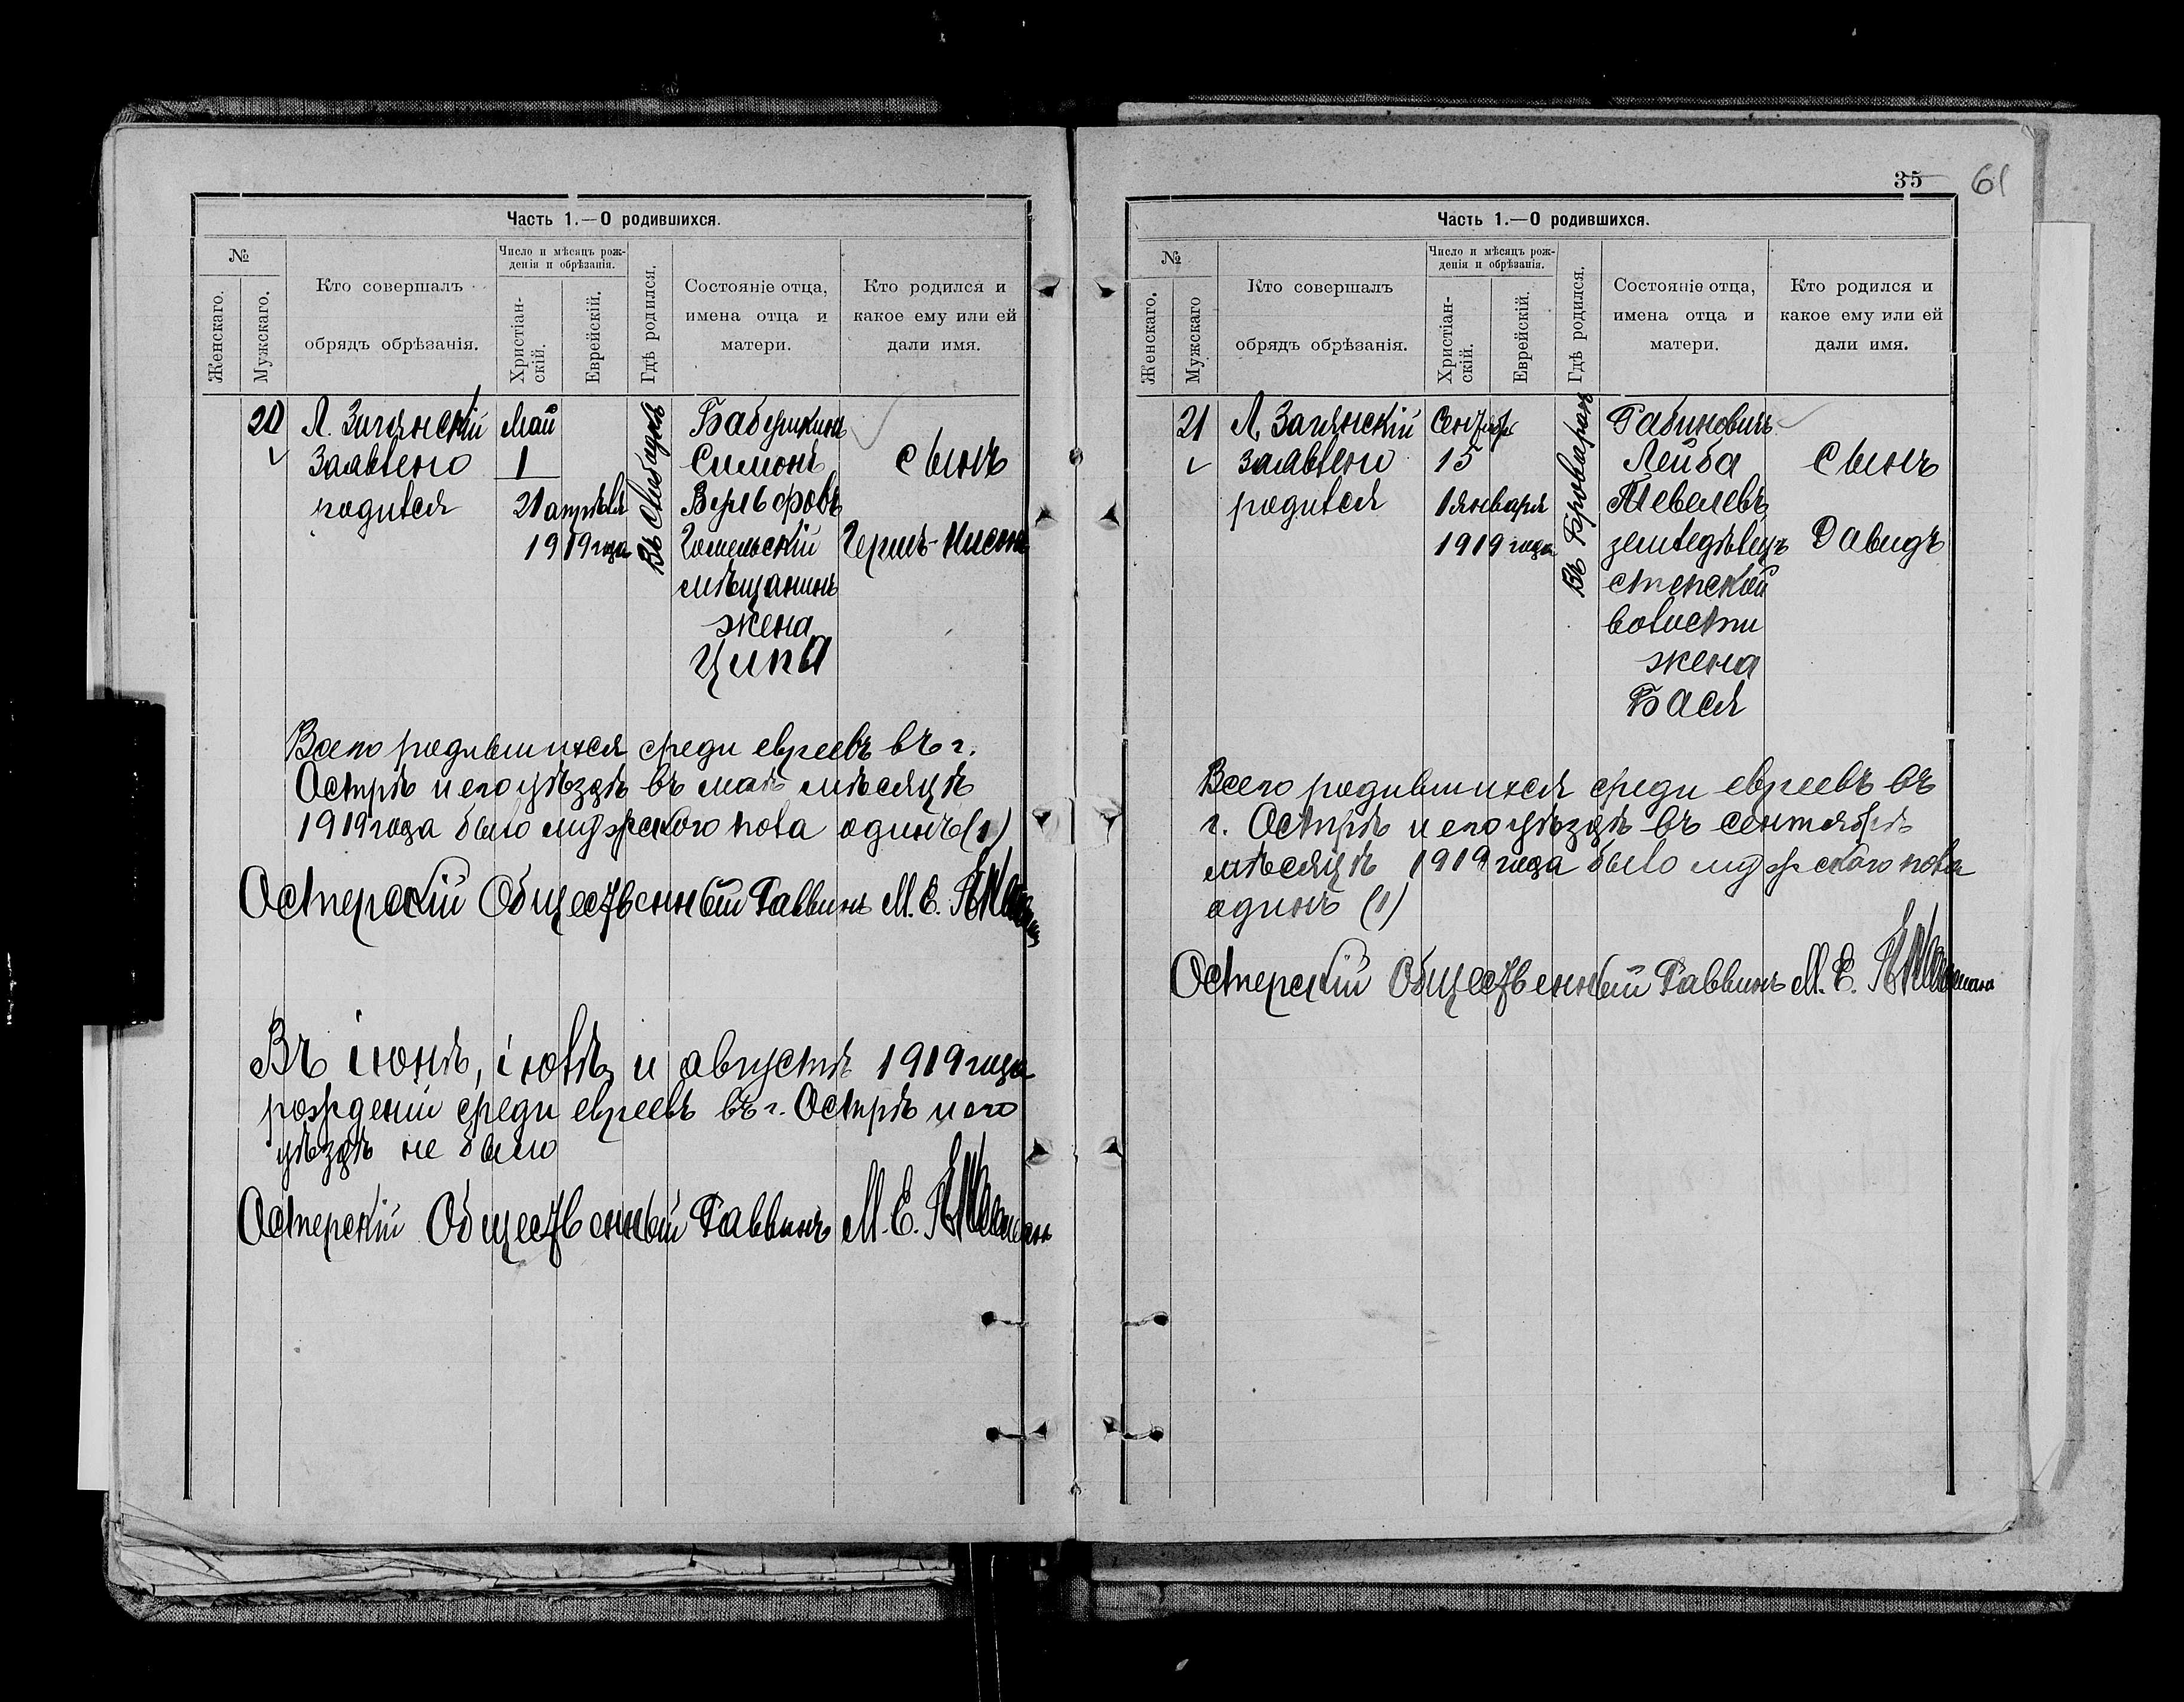 Часть 1.—О родившихся.
№
Женскаго.
Мужскаго.
Кто совершалъ
обрядъ обрѣзанія.
Число и мѣсяцъ рож-
денія и обрѣзанія.
Христіан-
скій.
Еврейскій.
Гдѣ родился.
Состояніе отца,
имена отца и
матери.
Кто родился и
какое ему или ей
дали имя.
20
Л.
Заявлено
родился
Май
1
21 апрѣля
1919 года
Въ Слободкѣ
Бабушкинъ
Симонъ
Вульфовъ
Гомельскій
мѣщанинъ
жена
Ципа
сынъ
Гершъ-Нисонъ
Всего родившихся среди евреевъ въ г.
Острѣ и его уѣздѣ въ маѣ мѣсяцѣ
1919 года было мужского пола одинъ (1)
Остерскій Общественный Раввинъ М. Е.
Въ іюнѣ, іюлѣ и августѣ 1919 года
рожденій среди евреевъ въ г. Острѣ и его
уѣздѣ не было
Остерскій Общественный Раввинъ М. Е.
35 61
Часть 1.—О родившихся.
№
Женскаго.
Мужскаго
Кто совершалъ
обрядъ обрѣзанія.
Число и мѣсяцъ рож-
денія и обрѣзанія.
Христіан-
скій.
Еврейскій.
Гдѣ родился.
Состояніе отца,
имена отца и
матери.
Кто родился и
какое ему или ей
дали имя.
21
Л.
заявлено
родился
Сентябр
15
1 января
1919 года
Въ Броварахъ
Рабиновичъ
Лейба
Тевелевъ
земледѣлецъ
жена
Бася
волости
сынъ
Давидъ
Всего родившихся среди евреевъ въ
г. Острѣ и его уѣздѣ въ сентябрѣ
мѣсяцѣ 1919 года было мужского пола
одинъ (1)
Остерскій Общественный Раввинъ М. Е.